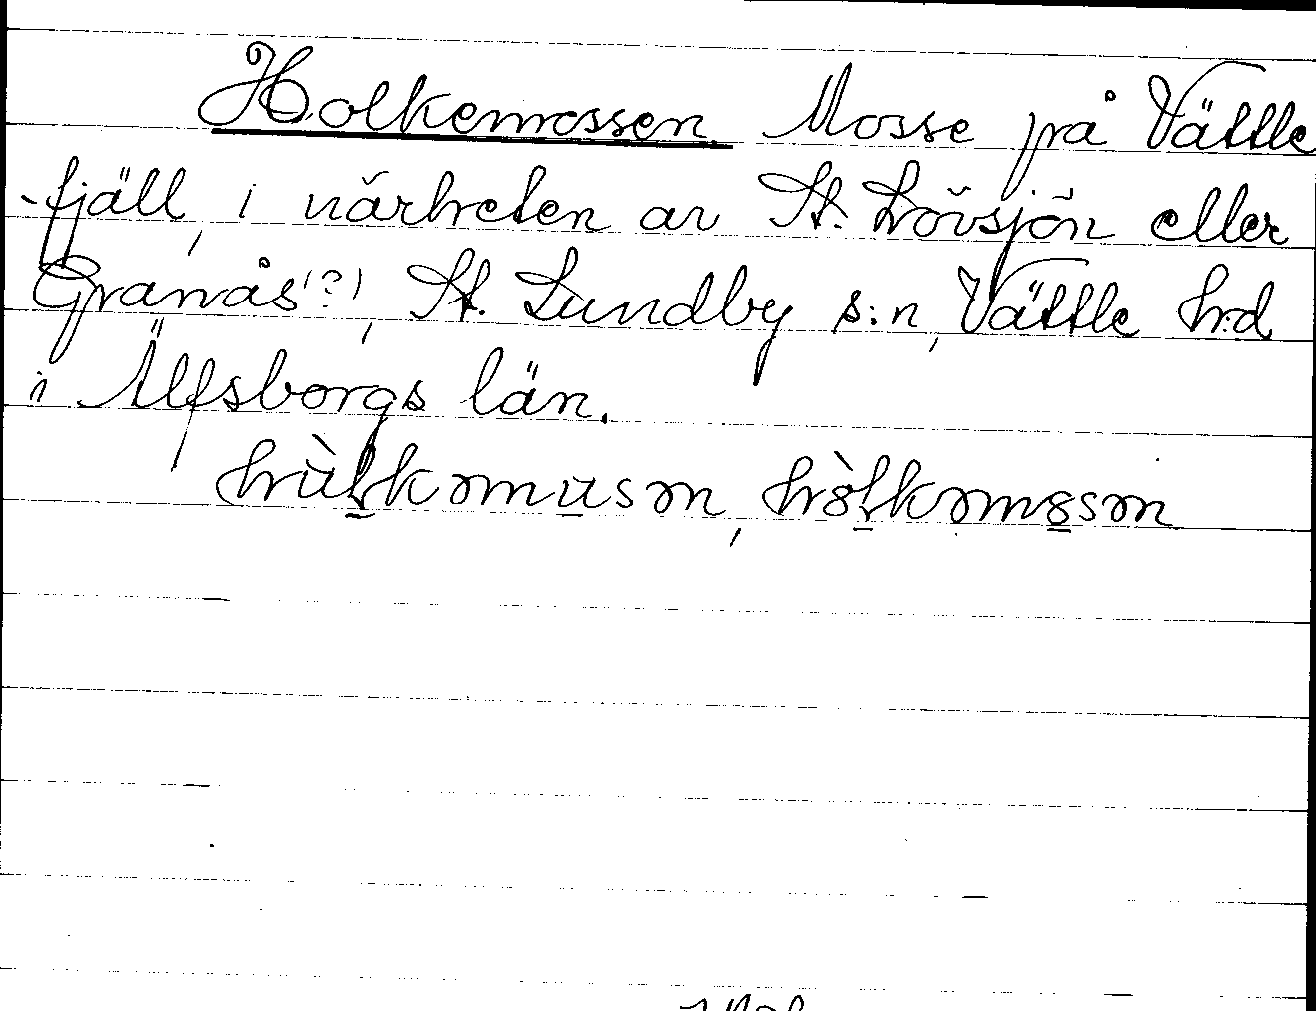 Holkemossen Mosse på Vättle
-fjäll, i närheten av St. Lövsjön eller
Granås(?), St. Lundby s:n, Vättle h:d
i Älfsborgs län.